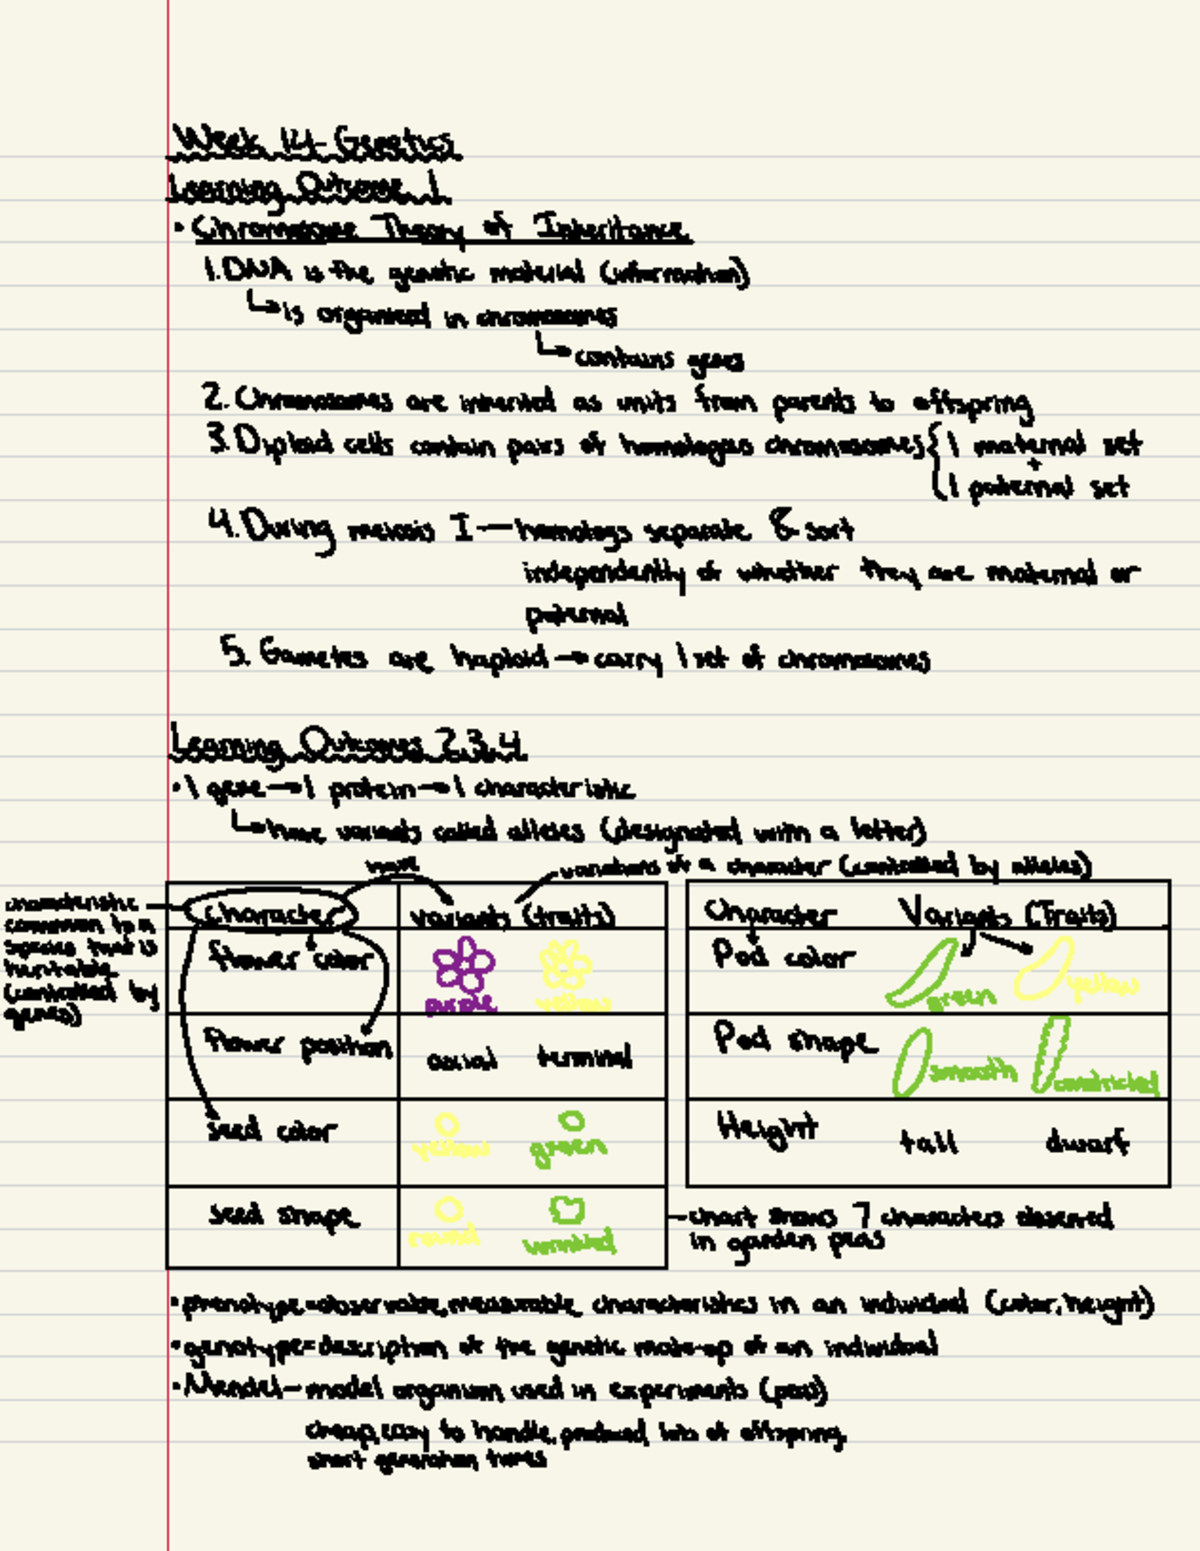 Week 14- Genetics
Learning Outcome 1
• Chromosome Theory of Inheritance
1. DNA is the genetic material (information)
↳ is organized in chromosomes
↳ contains genes
2. Chromosomes are inherited as units from parents to offspring
3. Diploid cells contain pairs of homologous chromosomes { 1 maternal set
+
1 paternal set
4. During meiosis I — homologs separate & sort
independently of whether they are maternal or
paternal
5. Gametes are haploid → carry 1 set of chromosomes
Learning Outcomes 2,3,4
• 1 gene → 1 protein → 1 characteristic
↳ have variants called alleles (designated with a letter)
have
variations of a character (controlled by alleles)
characteristic
common to a
species that is
heritable
(controlled by
genes)
Character variants (traits)
flower color purple yellow
flower position axial terminal
seed color yellow green
seed shape round wrinkled
Character Variants (Traits)
Pod color green yellow
Pod shape smooth constricted
Height tall dwarf
- chart shows 7 characters observed
in garden peas
• phenotype = observable, measurable characteristics in an individual (color, height)
• genotype = description of the genetic make-up of an individual
• Mendel - model organism used in experiments (peas)
cheap, easy to handle, produced lots of offspring,
short generation times